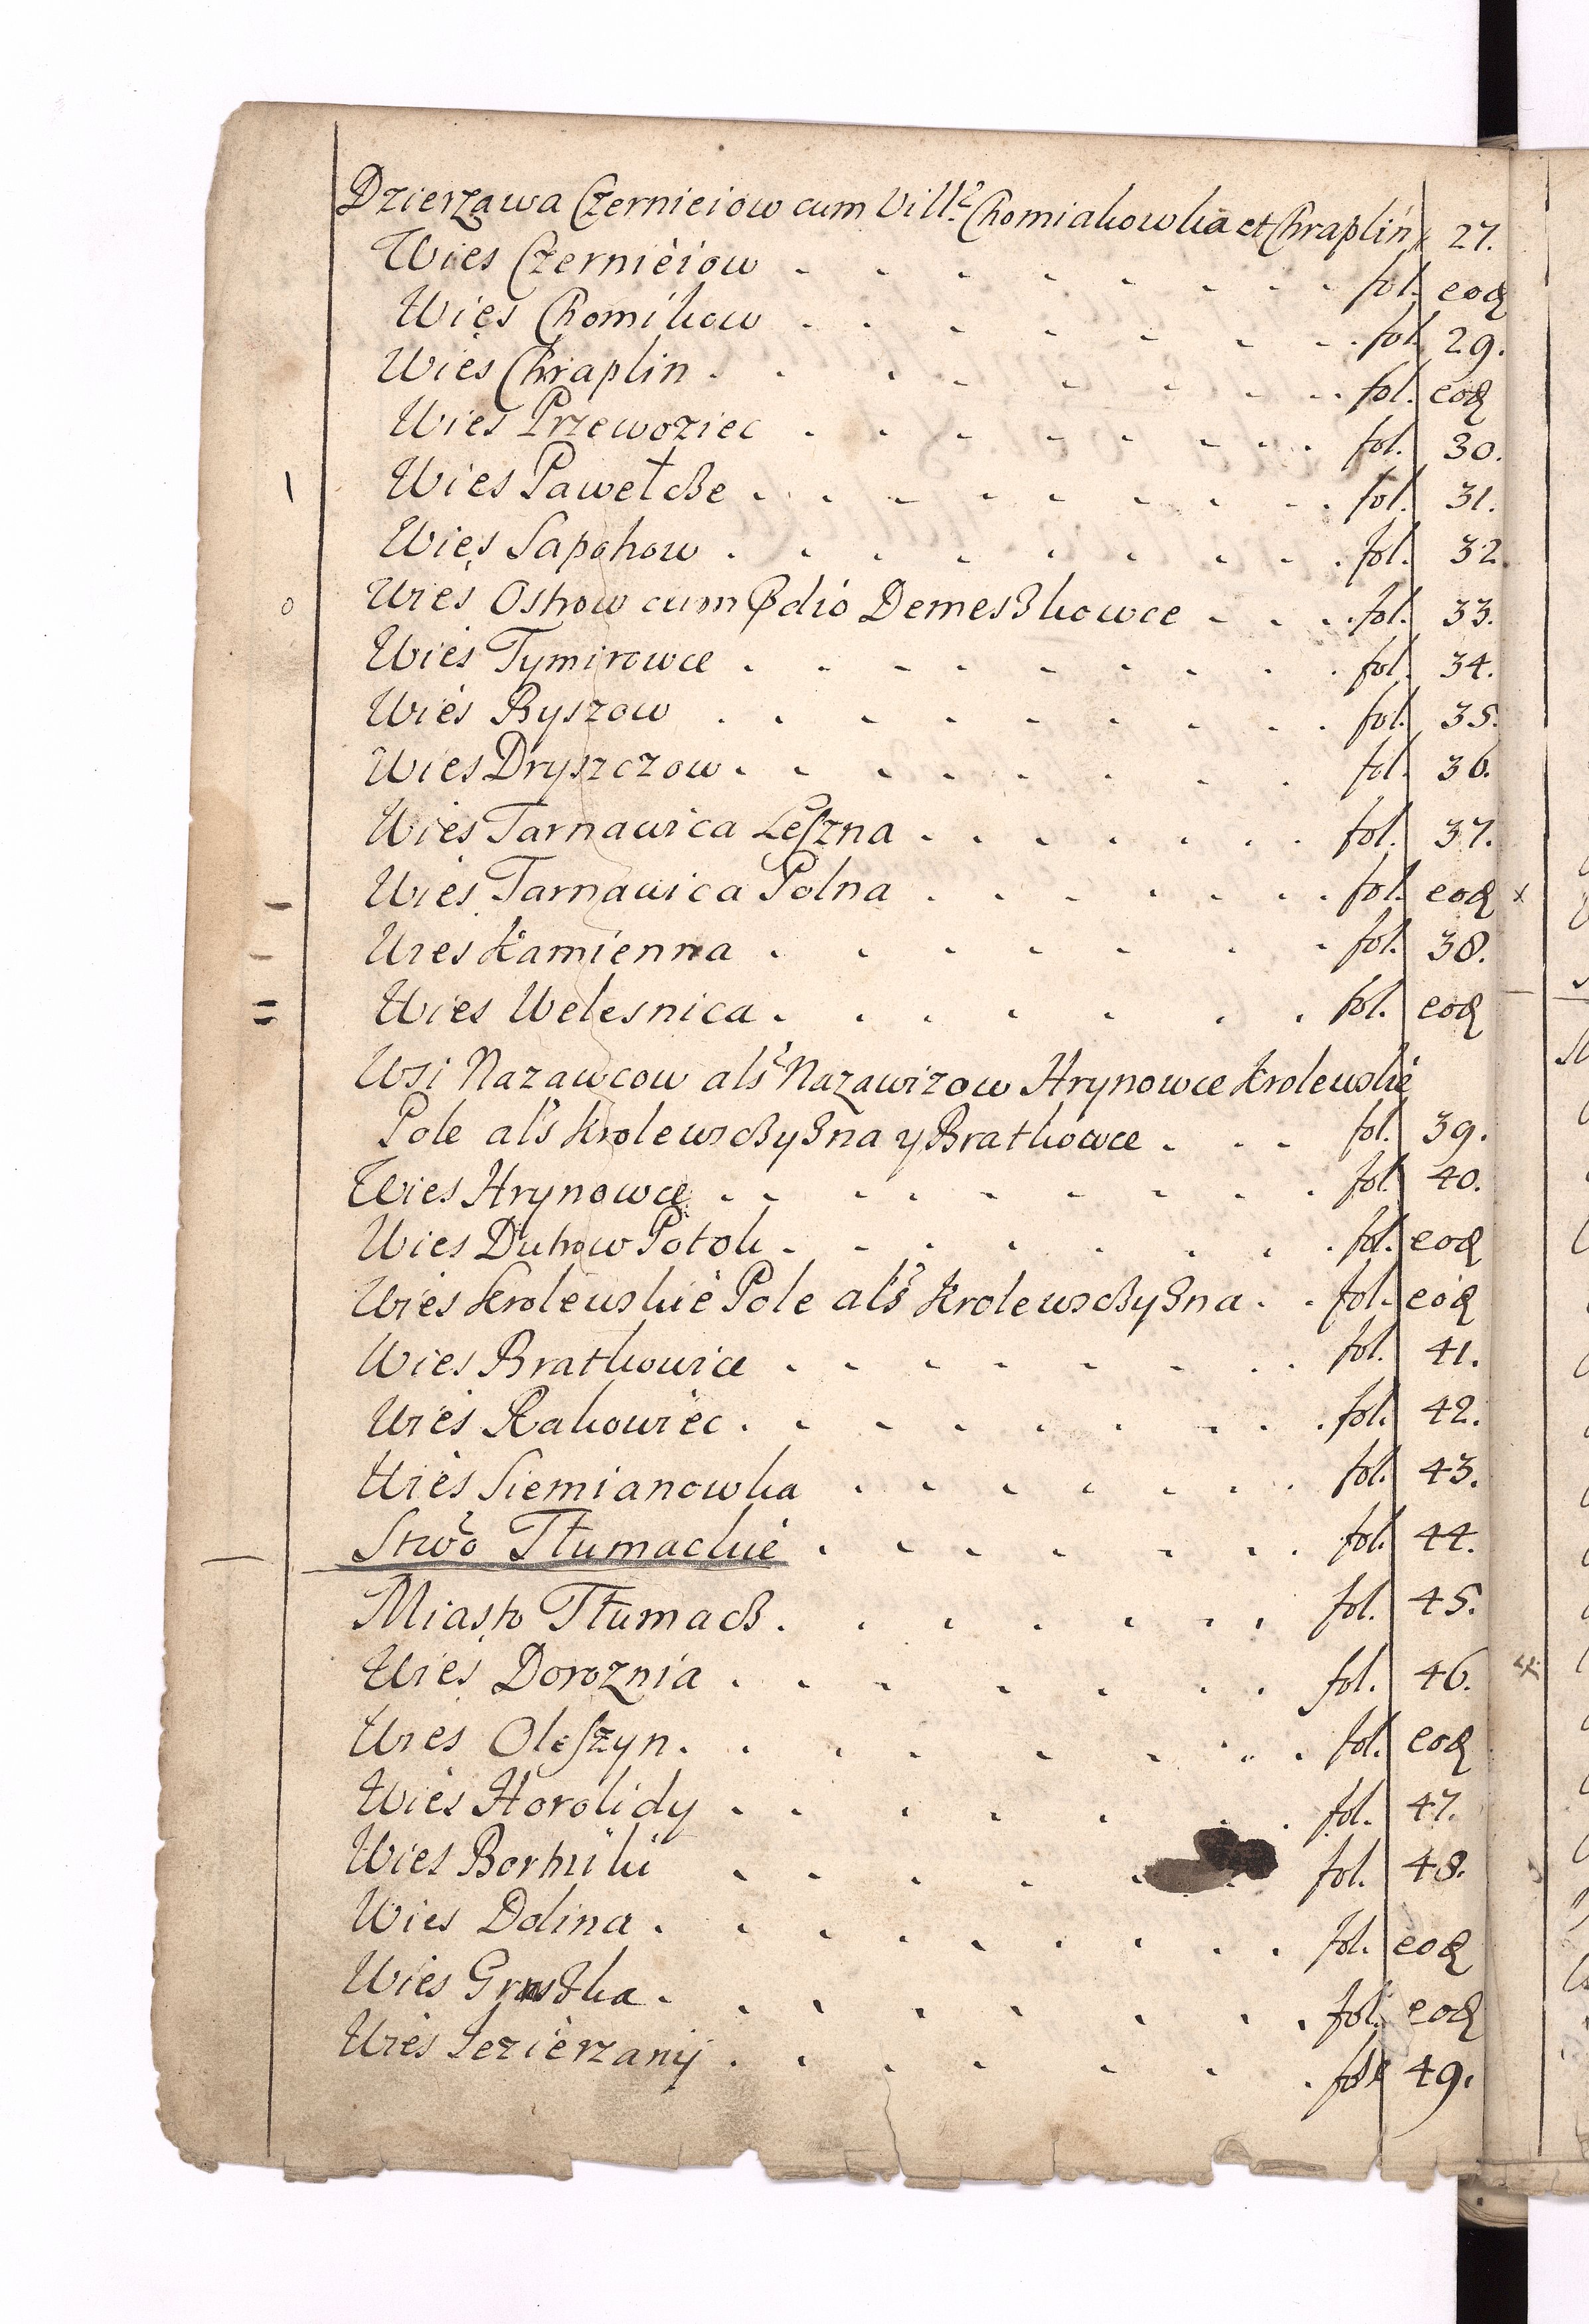 Dzierzawa Czernieiow cum Vill: Chomiakowka et Chraplin 27.
Wies Czernieiow . . . . . . . . fol. eod
Wies Chomikow . . . . . . . . fol. 29.
Wies Chraplin . . . . . . . . fol. eod
Wies Przewoziec . . . . . . . . fol. 30.
Wies Pawełcze . . . . . . . . fol. 31.
Wies Sapohow . . . . . . . . fol. 32
Wies Ostrow cum Pdio Demeszkowce . . . . fol. 33.
Wies Tymirowce . . . . . . . . fol. 34.
Wies Byszow . . . . . . . . fol. 35.
Wies Dryszczow . . . . . . . . fol. 36.
Wies Tarnawica Leszna . . . . . . . fol. 37.
Wies Tarnawica Polna . . . . . . . fol. eod
Wies Kamienna . . . . . . . fol. 38.
Wies Welesnica . . . . . . . fol. eod
Wsi Nazawcow als Nazawizow Hrynowce Krolewskie
Pole als Krolewszczyzna y Bratkowce . . . fol. 39.
Wies Hrynowce . . . . . . . . fol. 40.
Wies Duhow Potok . . . . . . . . fol. eod
Wies Krolewskie Pole als Krolewszczyzna . . fol. eod
Wies Bratkowice . . . . . . . . fol. 41.
Wies Rakowiec . . . . . . . . fol. 42.
Wies Siemianowka . . . . . . . fol. 43.
Stwo Tłumackie . . . . . . . fol. 44.
Miasto Tłumacz . . . . . . . fol. 45.
Wies Doroznia . . . . . . . fol. 46.
Wies Oleszyn . . . . . . . fol. eod
Wies Horolidy . . . . . . . fol. 47.
Wies Bortniki . . . . . . fol. 48.
Wies Dolina . . . . . . . . fol. eod
Wies Gruszka . . . . . . . fol. eod
Wies Jezierzany . . . . . . . fol. 49.